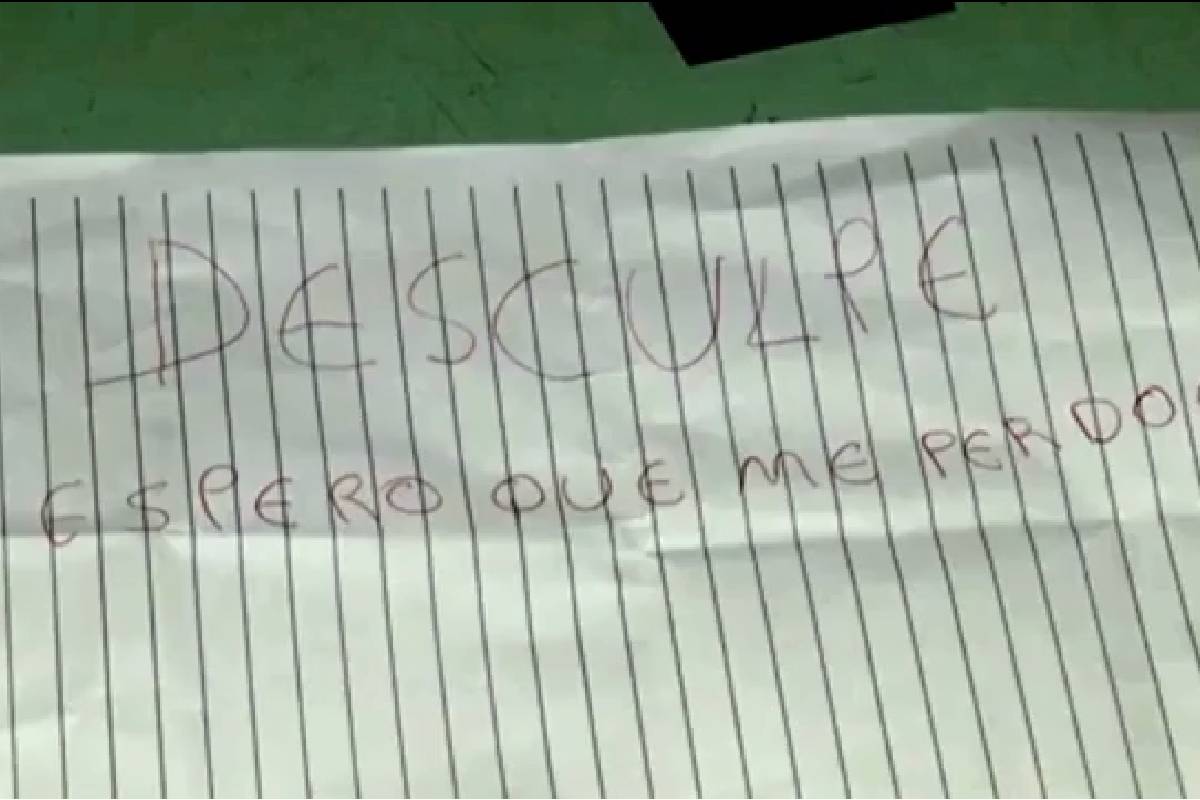 DESCULPE
ESPERO QUE ME PERDO